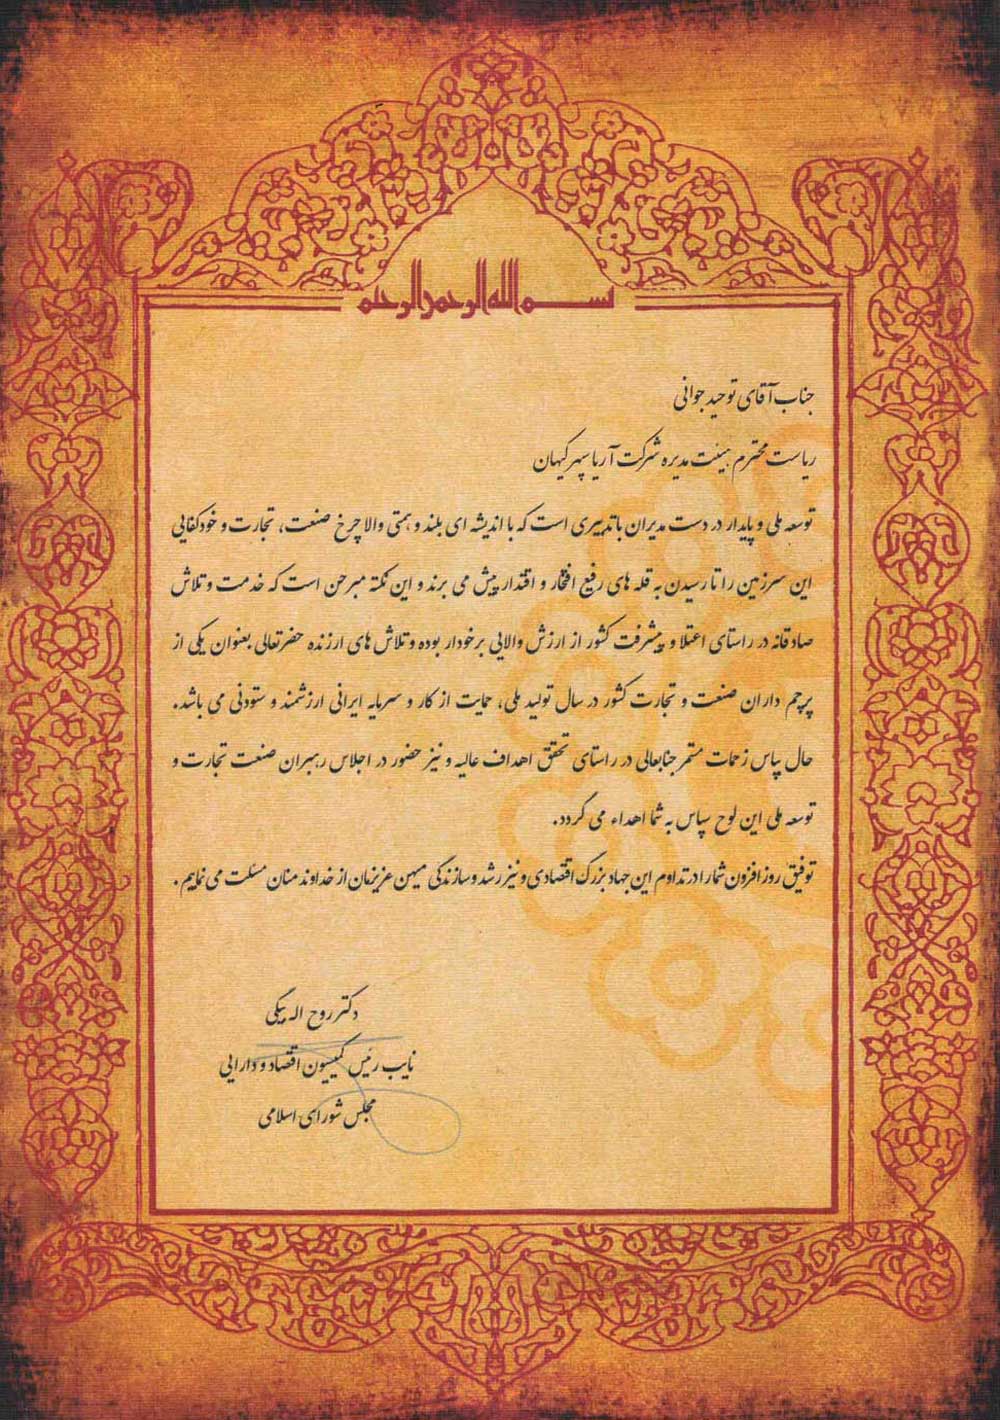 بسم الله الرحمن الرحیم
جناب آقای توحید جوانی
ریاست محترم هیئت مدیره شرکت آریا سپهر کیهان
توسعه ملی و پایدار در دست مدیران باتدبیری است که با اندیشه ای بلند و همتی والا چرخ صنعت، تجارت و خودکفایی
این سرزمین را تا رسیدن به قله های رفیع افتخار و اقتدار پیش می برند و این نکته مبرحن است که خدمت و تلاش
صادقانه در راستای اعتلا و پیشرفت کشور از ارزش والایی برخودار بوده و تلاش های ارزنده حضرتعالی بعنوان یکی از
پرچم داران صنعت و تجارت کشور در سال تولید ملی، حمایت از کار و سرمایه ایرانی ارزشمند و ستودنی می باشد.
حال بپاس زحمات مستمر جنابعالی در راستای تحقق اهداف عالیه و نیز حضور در اجلاس رهبران صنعت تجارت و
توسعه ملی این لوح سپاس به شما اهداء می گردد.
توفیق روزافزون شما را در تداوم این جهاد بزرگ اقتصادی و نیز رشد و سازندگی میهن عزیزمان از خداوند منان مسئلت می نماییم.
دکتر روح اله بیگی
نایب رئیس کمیسیون اقتصاد و دارایی
مجلس شورای اسلامی